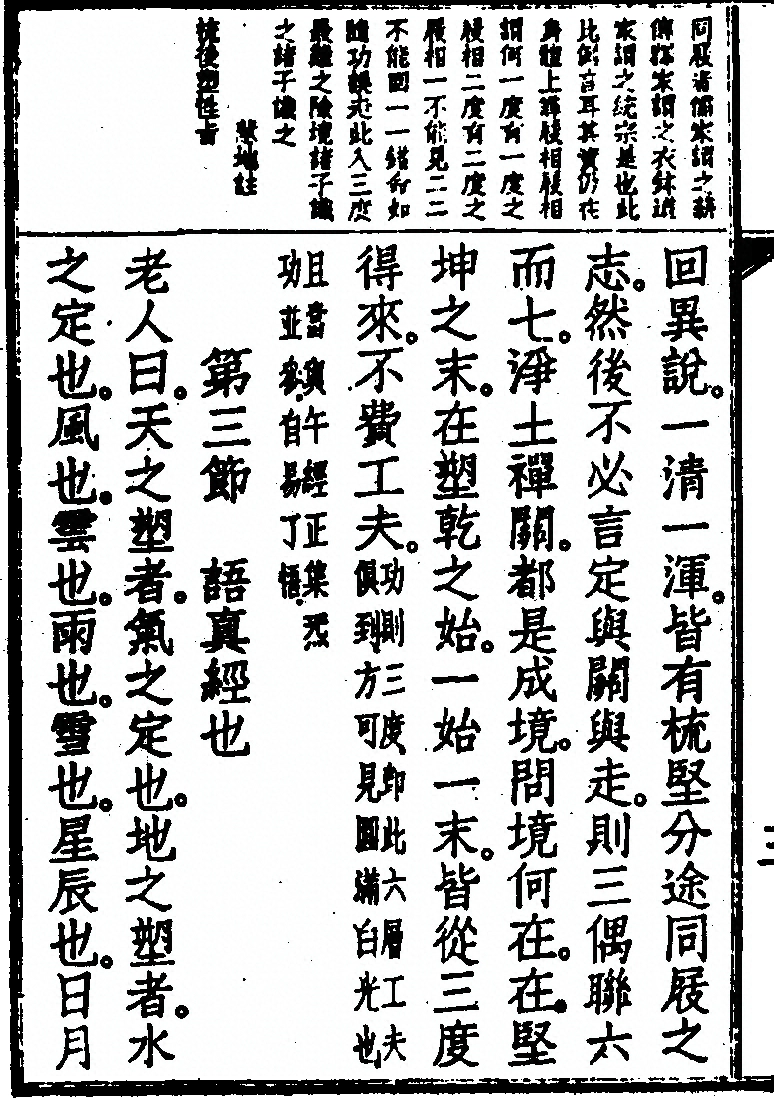 同屐者儒家謂之薪
傳釋家謂之衣鉢道
家謂之統宗是也此
比例言耳其實仍在
身體上尋屐相屐相
謂何一度有一度之
屐相二度有二度之
屐相一不能見二二
不能回一一錯台如
隨功誤走此入三度
最難之險境諸子識
之諸子識之
慧地註
梳後塑性旨
回異說。一清一渾。皆有梳堅分途同屐之
志。然後不必言定與關與走。則三偶聯六
而七。淨土禪關。都是成境。問境何在。在堅
坤之末。在塑乾之始。一始一末。皆從三度
得來。不費工夫。功則三度即此六層工夫
俱到方可見圓滿白光也
且當與午經正集烎
功並參自易了悟
第三節 語真經也
老人曰。天之塑者。氣之定也。地之塑者。水
之定也。風也。雲也。雨也。雪也。星辰也。日月
三